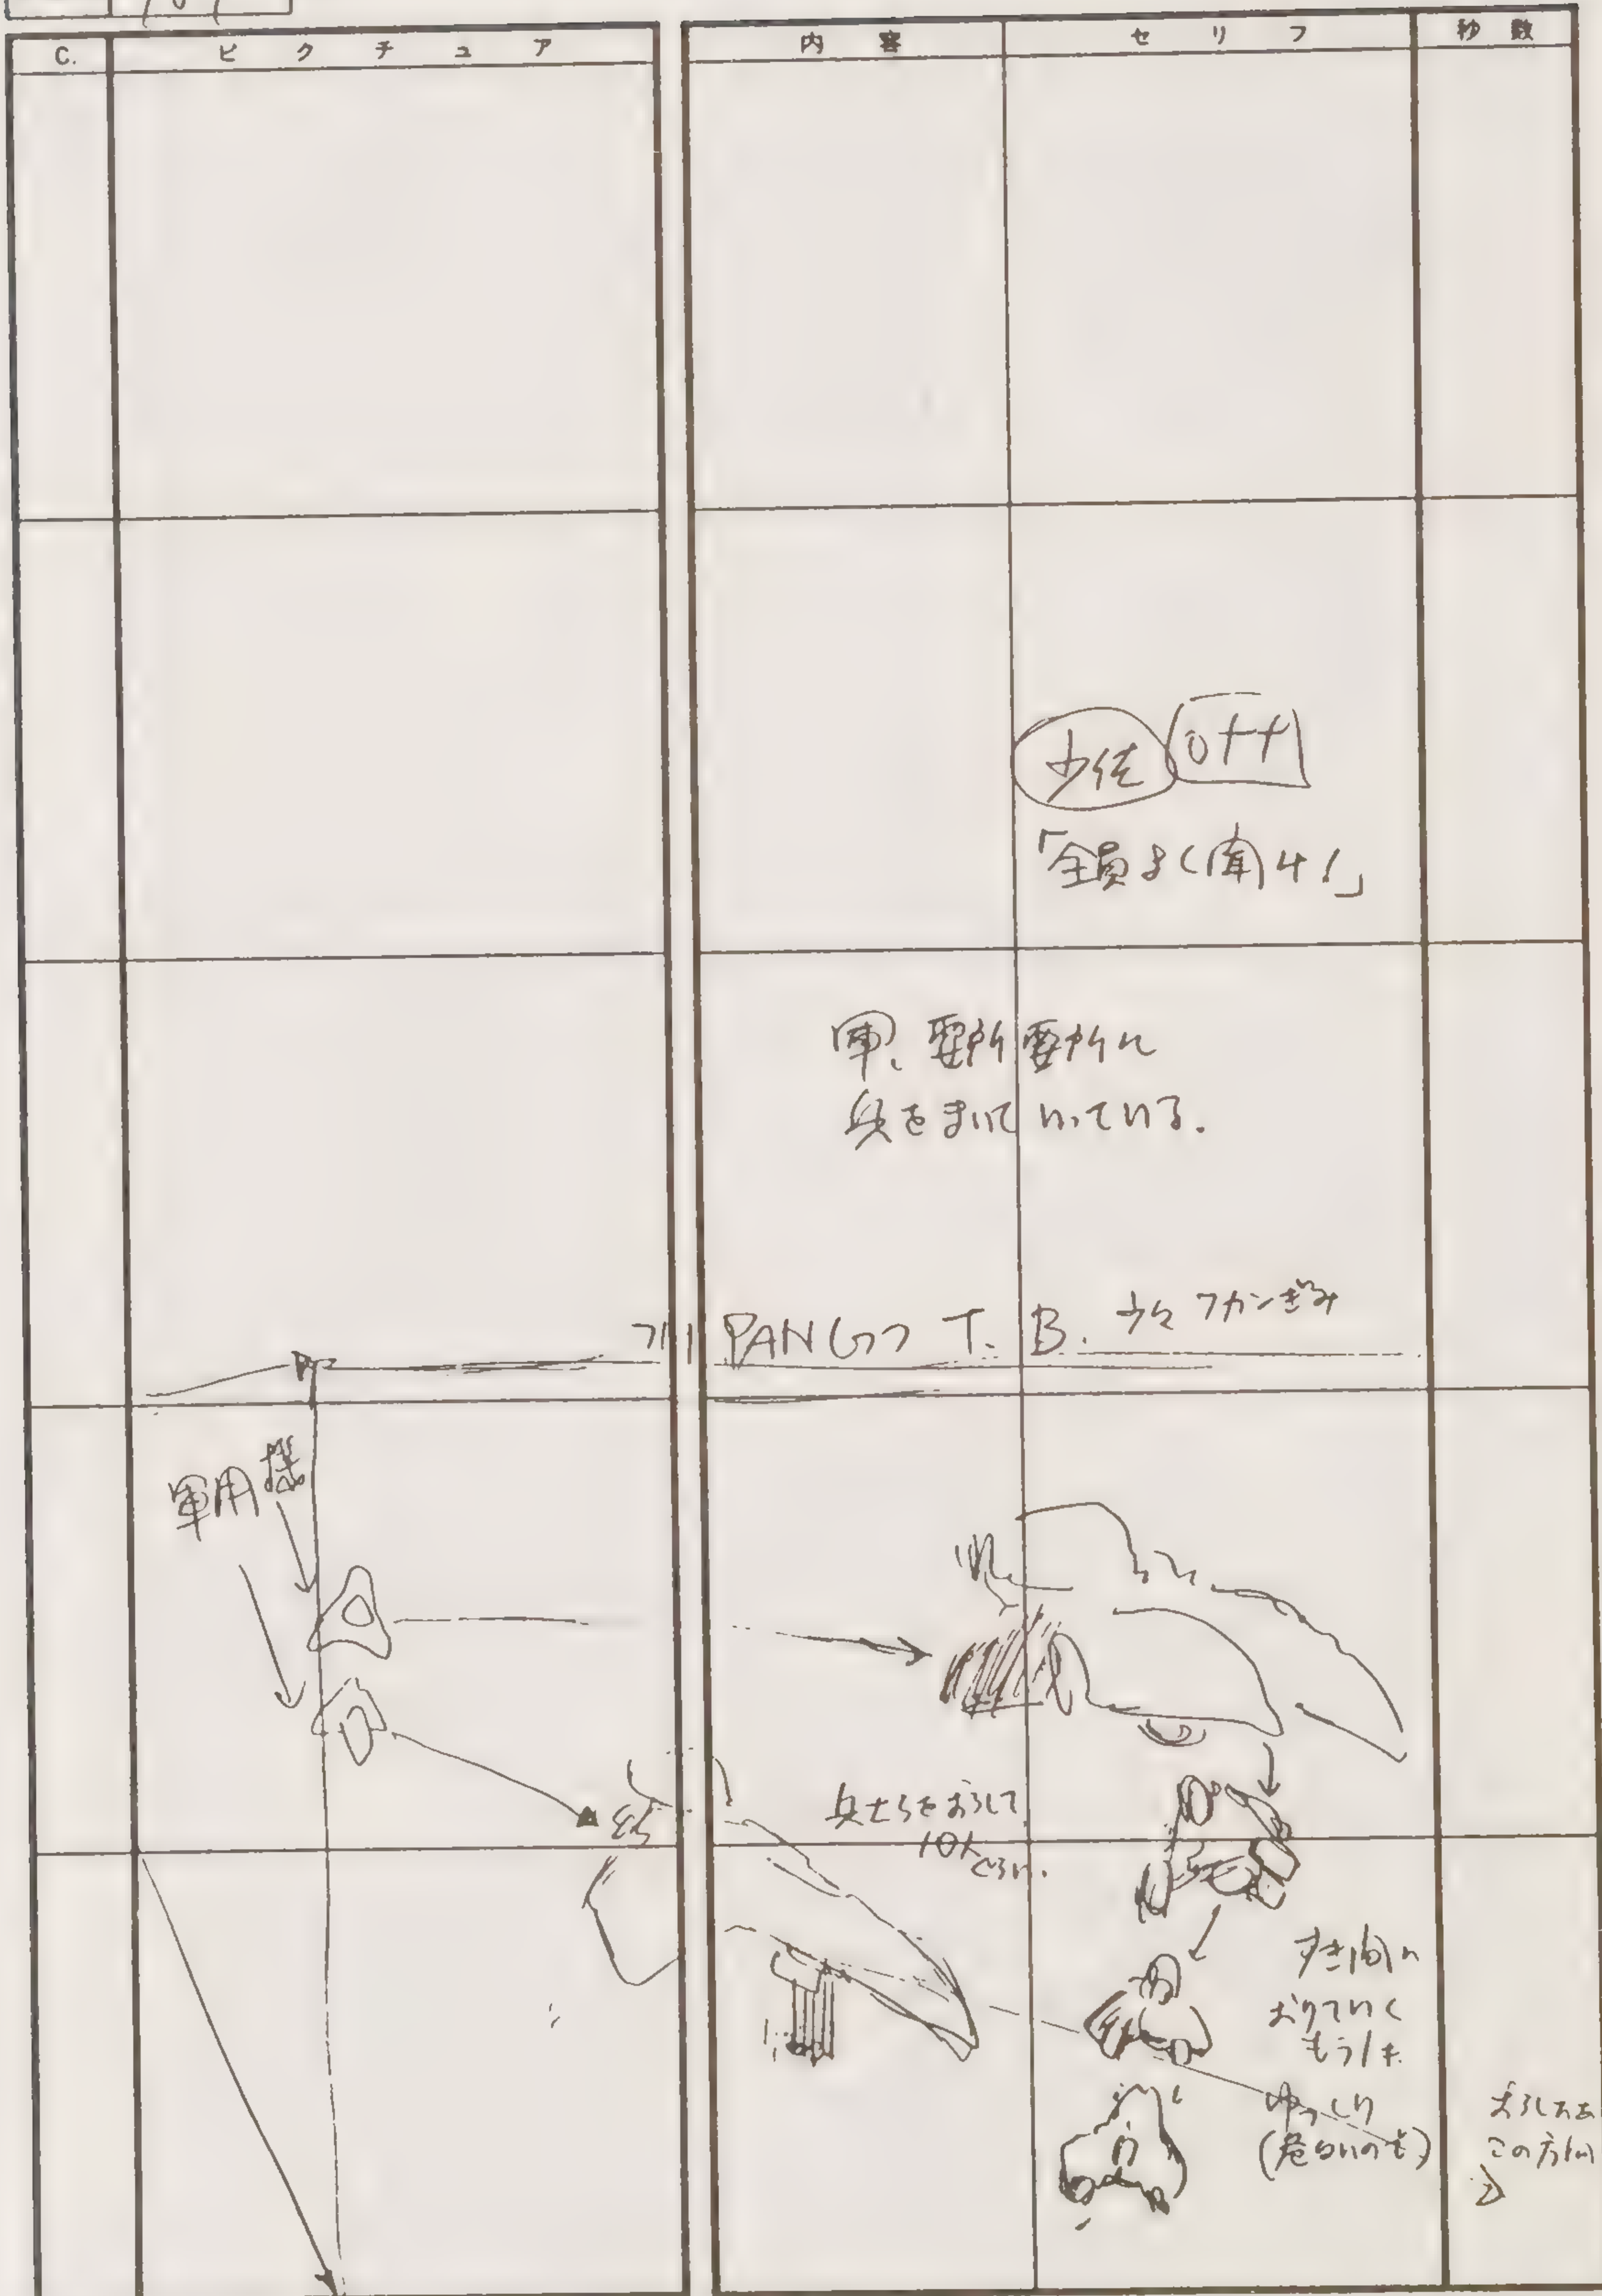 C. ピクチュア 内容 セリフ 秒数
少佐 off
「全員よく聞け!」
軍、要所要所に
兵をまいていっている。
PANしつつ T.B. 少々フカンぎみ
軍用
兵士らをおろして
10人
ぐらい.
すき間に
おりていく
もう1
ゆっくり
(危ないのも)
この方向